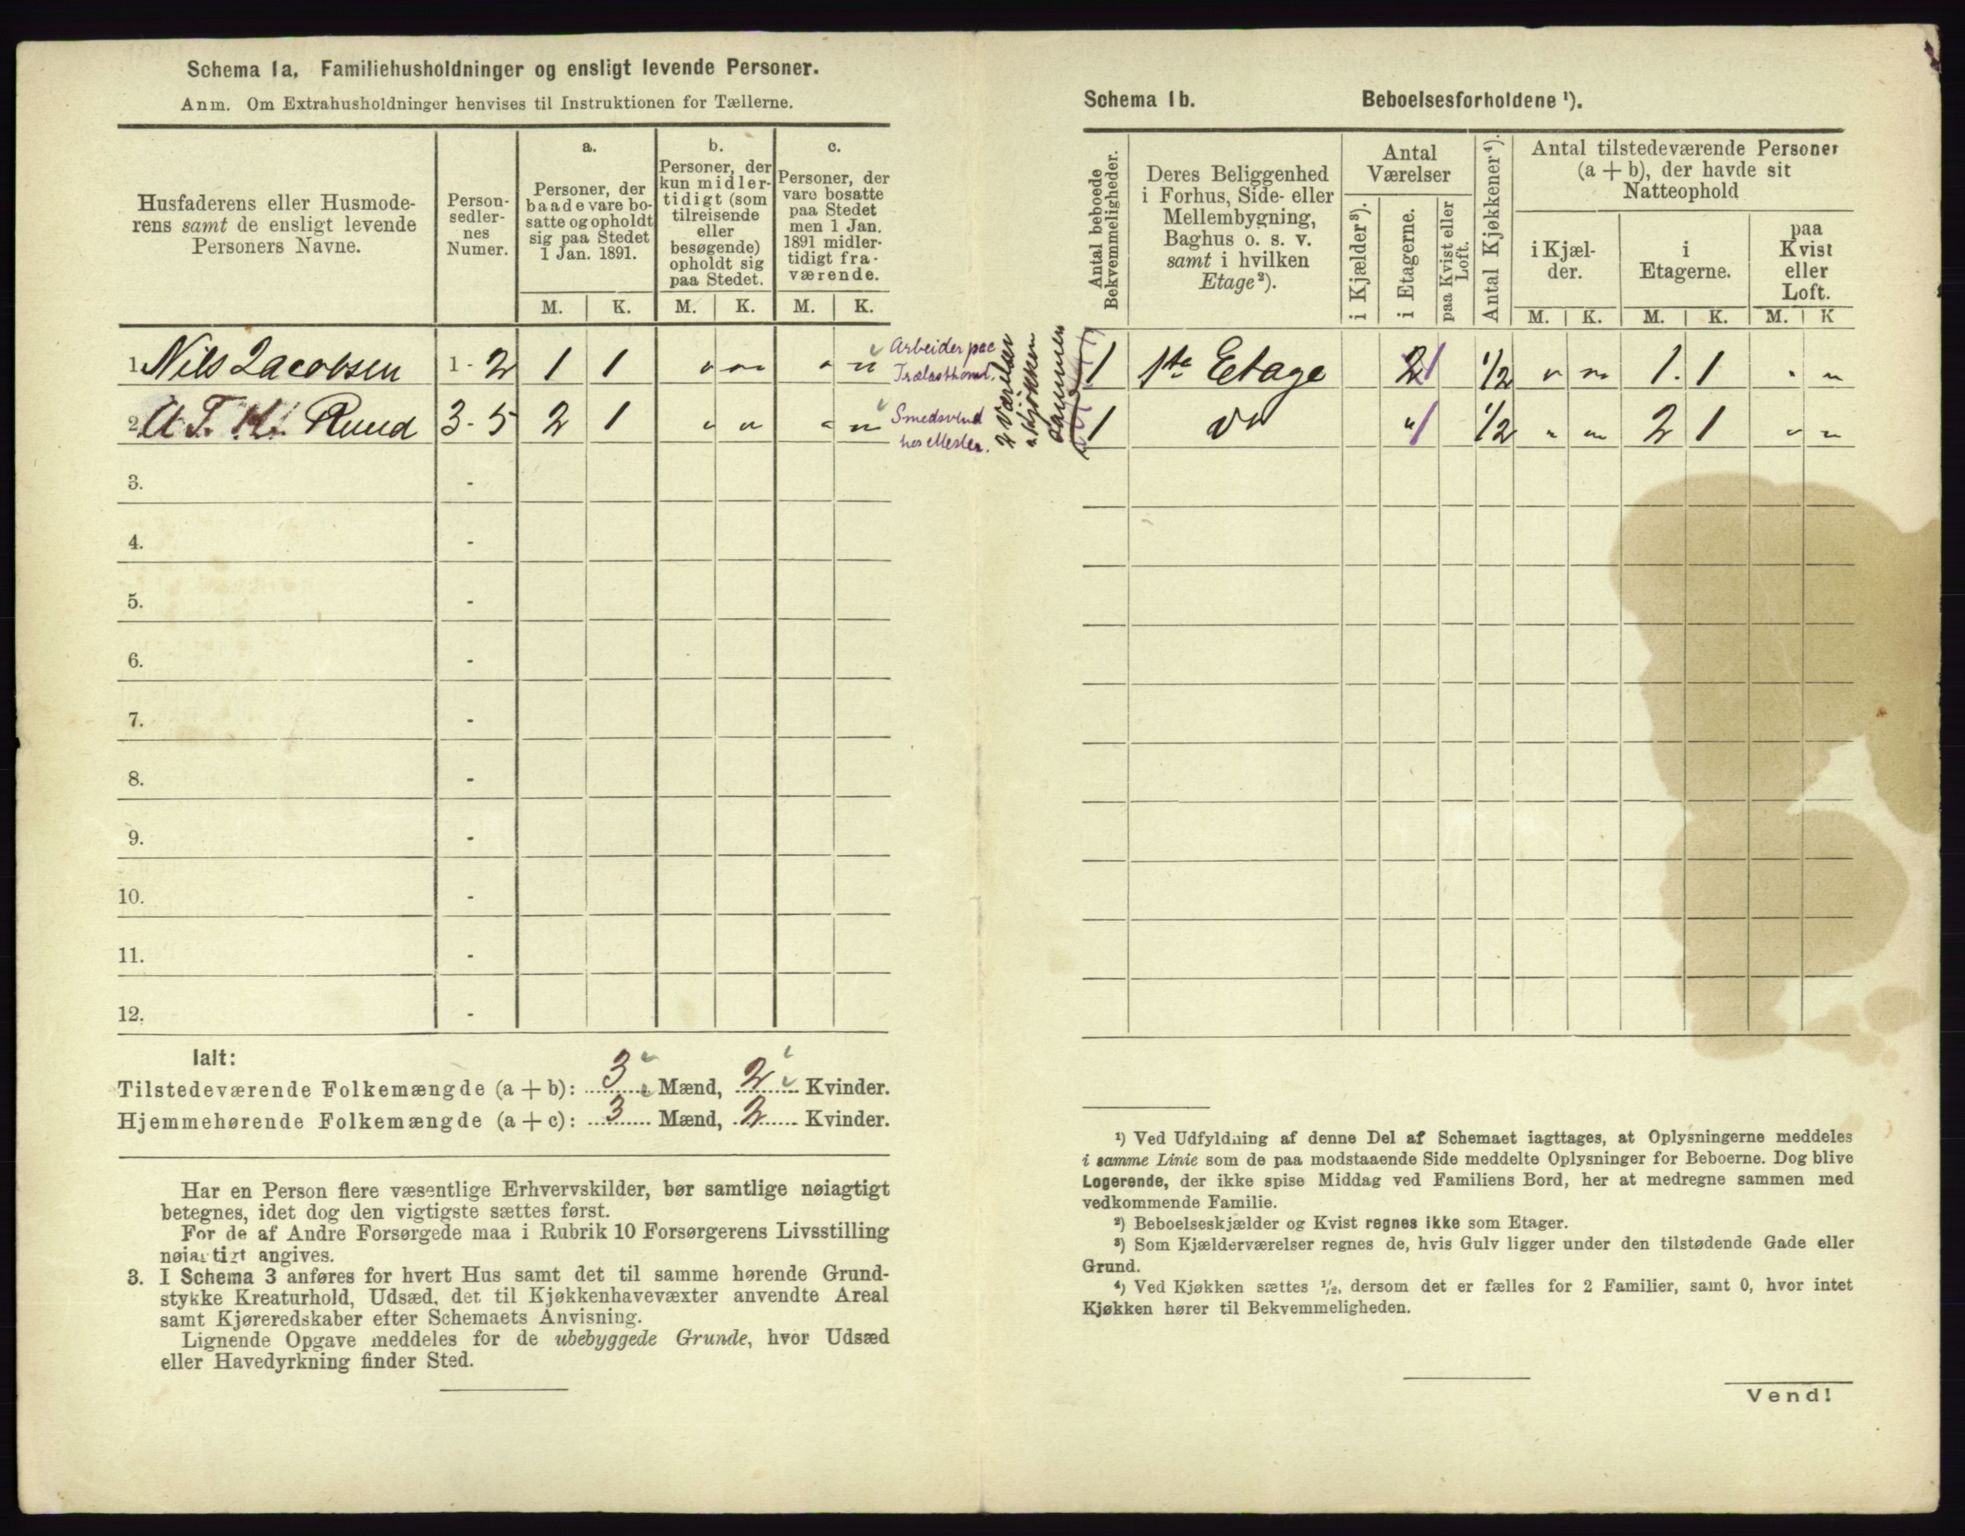 Schema 1a. Familiehusholdninger og ensligt levende Personer.
Anm. Om Extrahusholdninger henvises til Instruktionen for Tællerne.
Husfaderens eller Husmode-
rens samt de ensligt levende
Personers Navne.
Person-
sedler-
nes
Numer.
a.
Personer, der
baade vare bo-
satte og opholdt
sig paa Stedet
1 Jan. 1891.
b.
Personer, der
kun midler-
tidigt (som
tilreisende
eller
besøgende)
opholdt sig
paa Stedet.
c.
Personer, der
vare bosatte
paa Stedet
men 1 Jan.
1891 midler-
tidigt fra-
værende.
M. K. M. K. M. K.
1. Nils Jacobsen 1 - 2 1 1 " " " " Arbeider paa
2. A. T. H. Ruud 3 - 5 2 1 " " " " Smedsvend
hos Mester.
3. -
4. -
5. -
6. -
7. -
8. -
9. -
10. -
11. -
12. -
Ialt:
Tilstedeværende Folkemængde (a + b): 3 Mænd, 2 Kvinder.
Hjemmehørende Folkemængde (a + c): 3 Mænd, 2 Kvinder.
Har en Person flere væsentlige Erhvervskilder, bør samtlige nøiagtigt
betegnes, idet dog den vigtigste sættes først.
For de af Andre Forsørgede maa i Rubrik 10 Forsørgerens Livsstilling
nøiagtigt angives.
3. I Schema 3 anføres for hvert Hus samt det til samme hørende Grund-
stykke Kreaturhold, Udsæd, det til Kjøkkenhavevæxter anvendte Areal
samt Kjøreredskaber efter Schemaets Anvisning.
Lignende Opgave meddeles for de ubebyggede Grunde, hvor Udsæd
eller Havedyrkning finder Sted.
2 Værelser
1 Kjøkken
sammen
Schema 1b. Beboelsesforholdene ¹).
Antal beboede
Bekvemmeligheder.
Deres Beliggenhed
i Forhus, Side- eller
Mellembygning,
Baghus o. s. v.
samt i hvilken
Etage²).
Antal
Værelser
i Kjælder³).
i Etagerne.
paa Kvist eller
Loft.
Antal Kjøkkener⁴).
Antal tilstedeværende Personer
(a + b), der havde sit
Natteophold
i Kjæl-
der.
i
Etagerne.
paa
Kvist
eller
Loft.
M. K. M. K. M. K
1 1ste Etage 2 1 1/2 " " 1 1 " "
1 " 1 1/2 " " 2 1 " "
¹) Ved Udfyldning af denne Del af Schemaet iagttages, at Oplysningerne meddeles
i samme Linie som de paa modstaaende Side meddelte Oplysninger for Beboerne. Dog blive
Logerende, der ikke spise Middag ved Familiens Bord, her at medregne sammen med
vedkommende Familie.
²) Beboelseskjælder og Kvist regnes ikke som Etager.
³) Som Kjælderværelser regnes de, hvis Gulv ligger under den tilstødende Gade eller
Grund.
⁴) Ved Kjøkken sættes ½, dersom det er fælles for 2 Familier, samt 0, hvor intet
Kjøkken hører til Bekvemmeligheden.
Vend!